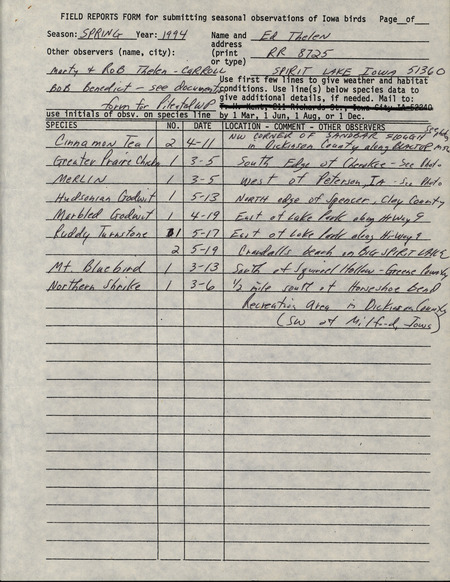 FIELD REPORTS FORM for submitting seasonal observations of Iowa birds Page_of_
Season: SPRING Year: 1994 Name and Ed Thelen
address
Other observers (name, city): (print RR 8725
or type)
Marty & Rob Thelen - CARROLL SPIRIT LAKE IOWA 51360
Bob Benedict - see document Use first few lines to give weather and habitat conditions. Use line(s) below species data to
form for give additional details, if needed. Mail to:
use initials of obsv. on species line by 1 Mar, 1 Jun, 1 Aug, or 1 Dec.
SPECIES NO. DATE LOCATION - COMMENT - OTHER OBSERVERS
Cinnamon Teal 2 4-11 NW CORNER OF SANDBAR SLOUGH
Dickinson County along
Greater Prairie Chicken 1 3-5 South Edge of Cherokee - See Photo
MERLIN 1 3-5 West of Peterson, IA - See Photo
Hudsonian Godwit 1 5-13 North edge of Spencer, Clay County
Marbled Godwit 1 4-19 East of Lake Park along Hi-way 9
Ruddy Turnstone 1 5-17 East of Lake Park along Hi-way 9
2 5-19 Crandalls beach on BIG SPIRIT LAKE
Mt. Bluebird 1 3-13 South of Squirrel Hollow - Greene County
Northern Shrike 1 3-6 1/2 mile south of Horseshoe Bend
Recreation Area in Dickinson County
(SW of Milford, Iowa)